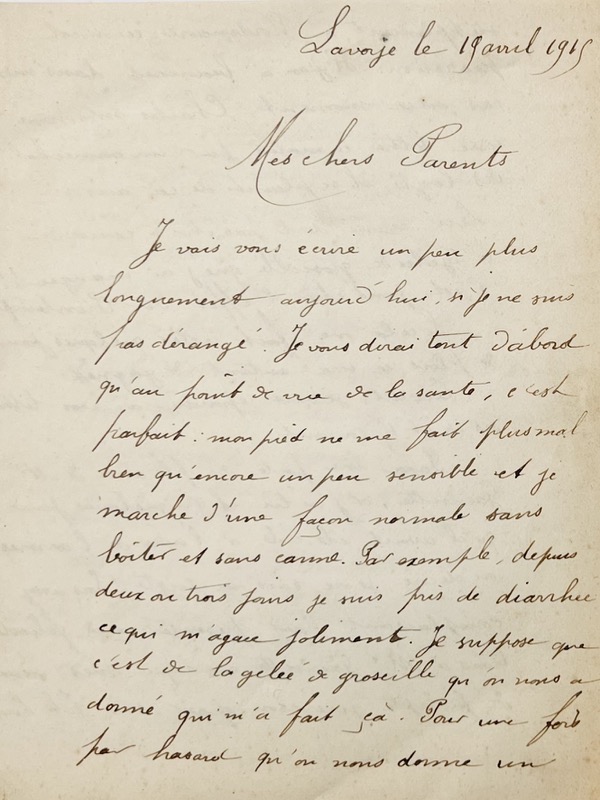 Lavoye le 19 avril 1915
Mes chers Parents
Je vais vous écrire un peu plus
longuement aujourd'hui, si je ne suis
pas dérangé. Je vous dirai tout d'abord
qu'au point de vue de la santé, c'est
parfait : mon pied ne me fait plus mal
bien qu'encore un peu sensible et je
marche d'une façon normale sans
boîter et sans canne. Par exemple, depuis
deux ou trois jours je suis pris de diarrhée
ce qui m'agace joliment. Je suppose que
c'est de la gelée de groseille qu'on nous a
donné qui m'a fait çà. Pour une fois
par hasard qu'on nous donne un